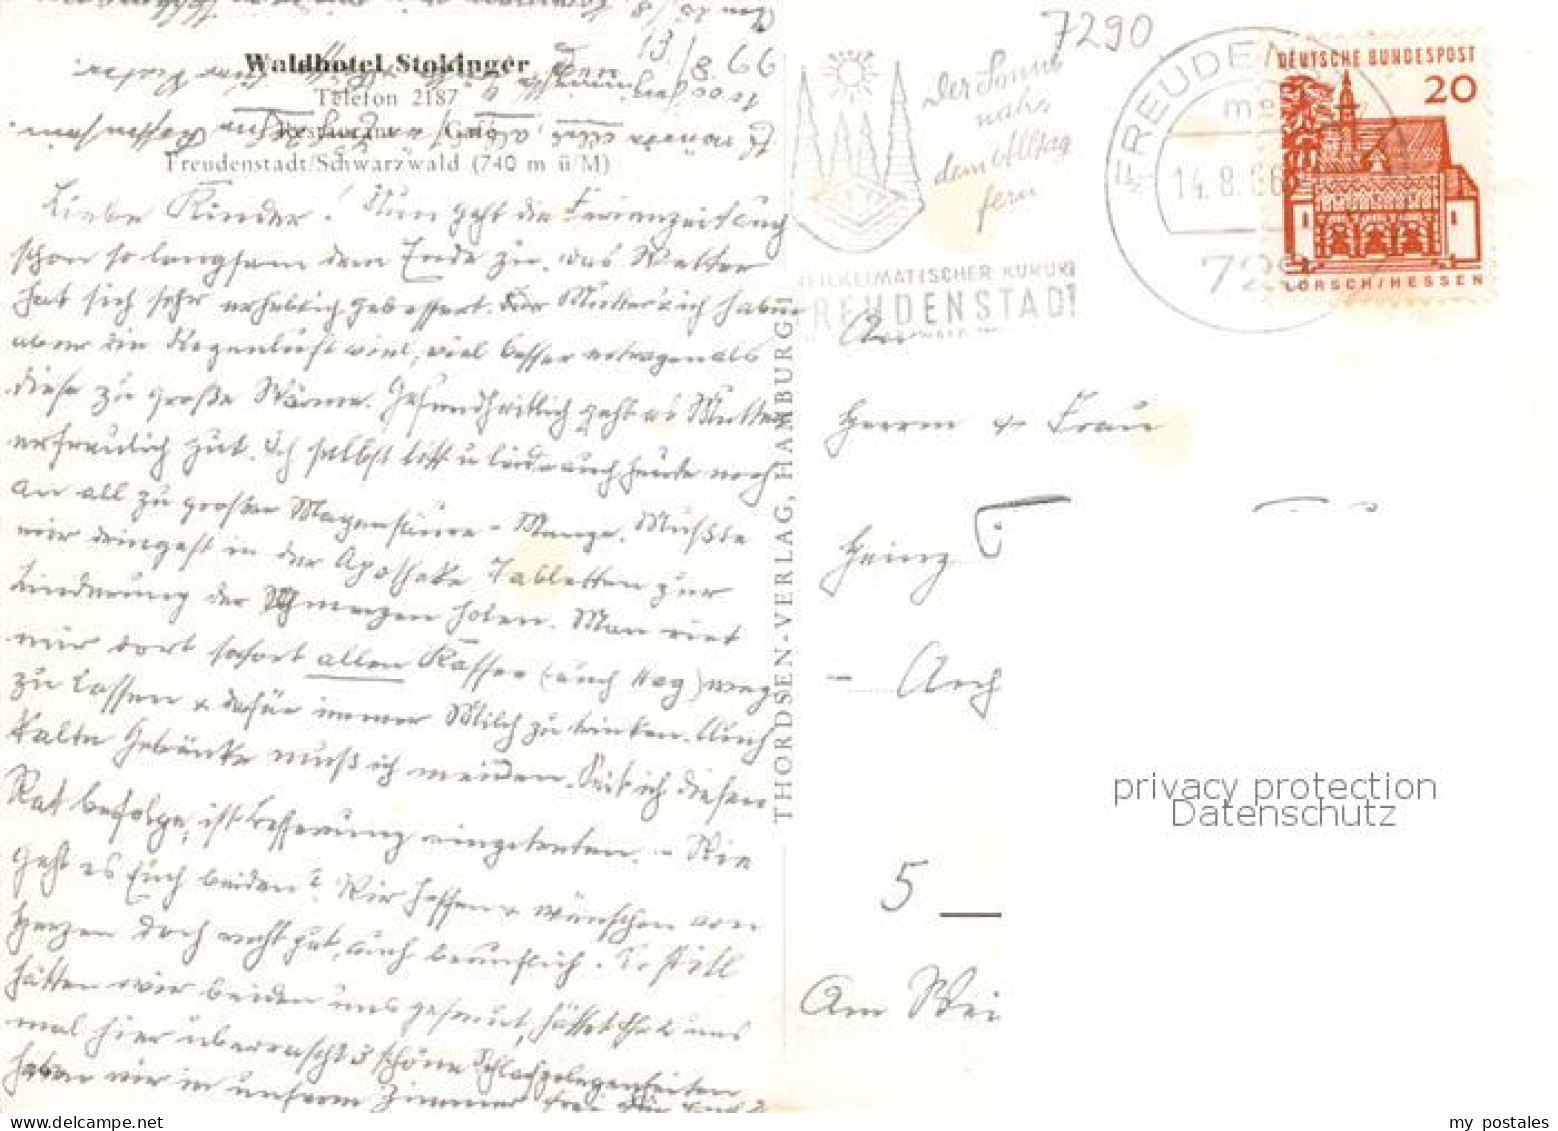 13/8 66
Waldhotel Stokinger
Telefon 2187
Restaurant Café
Freudenstadt/Schwarzwald (740 m ü/M)
Liebe Kinder! Nun geht die Ferienzeit auch
schon so langsam dem Ende zu. Das Wetter
hat sich sehr erheblich gebessert. Mutter & ich haben
aber die Regenluft viel, viel besser ertragen als
diese zu große Wärme. Gesundheitlich geht es Mutter
erfreulich gut. Ich selbst litt u leide auch heute noch
an all zu großer Magensäure - Menge. Mußte
mir dringest in der Apotheke Tabletten zur
Linderung der Schmerzen holen. Man riet
mir dort sofort allen Kaffee (auch Hag) weg
zu lassen & dafür immer Milch zu trinken. Auch
kalte Getränke muß ich meiden. Seit ich diesen
Rat befolge, ist Besserung eingetreten. - Wie
geht es Euch beiden? Wir hoffen & wünschen von
Herzen doch recht gut, auch beruflich. So still
hätten wir beiden uns gefreut, hättet Ihr uns
mal hier überrascht. 3 schöne Schlafgelegenheiten
haben wir in unserm Zimmer frei
THORDSEN-VERLAG, HAMBURG
7290
Der Sonne
nah,
dem Alltag
fern
HEILKLIMATISCHER KURORT
FREUDENSTADT
FREUDEN
14.8.66
72
DEUTSCHE BUNDESPOST
20
LORSCH/HESSEN
An
Herrn & Frau
Heinz
- Arch
5
Am Wei
privacy protection
Datenschutz
my postales